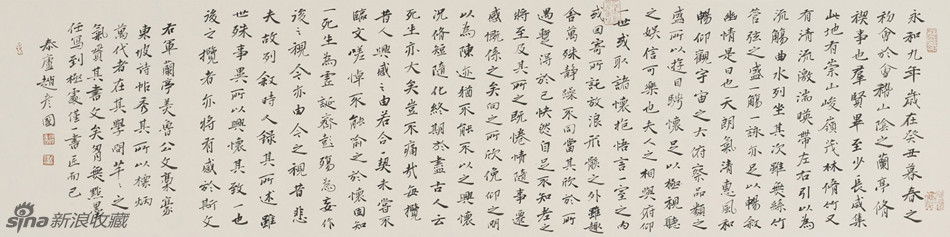 永和九年歲在癸丑暮春之
初會於會稽山陰之蘭亭脩
禊事也羣賢畢至少長咸集
此地有崇山峻嶺茂林脩竹又
有清流激湍暎帶左右引以為
流觴曲水列坐其次雖無絲竹
管弦之盛一觴一詠亦足以暢叙
幽情是日也天朗氣清惠風和
暢仰觀宇宙之大俯察品類之
盛所以遊目騁懷足以極視聽
之娛信可樂也夫人之相與俯仰
一世或取諸懷抱悟言一室之內
或因寄所託放浪形骸之外雖趣
舍萬殊靜躁不同當其欣於所
遇暫得於己快然自足不知老之
將至及其所之既惓情隨事遷
感慨係之矣向之所欣俛仰之間
以為陳迹猶不能不以之興懷
況脩短隨化終期於盡古人云
死生亦大矣豈不痛哉每攬
昔人興感之由若合一契未嘗不
臨文嗟悼不能喻之於懷固知
一死生為虛誕齊彭殤為妄作
後之視今亦由今之視昔悲
夫故列叙時人錄其所述雖
世殊事異所以興懷其致一也
後之攬者亦將有感於斯文
右軍蘭亭美
東坡詩帖秀其所以標炳
萬代者在其學問
氣質其書文矣
任寫到極處僅一書匠而已
泰廬趙彥國
sina新浪收藏